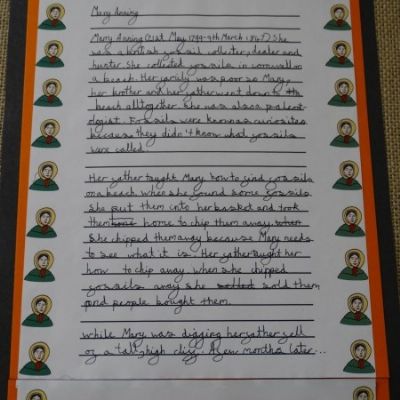 Mary Anning
Mary Anning (21st May 1799-9th March 1847) She
was a british fossil colleter, dealer and
hunter. She collected fossils in cornwall on
a beach. Her family was poor so Mary,
her brother and her father went down to the
beach alltogether. She was also a paleont-
ologist. Fossils were known as curiosities
because they didn't know what fossils
were called.
Her father taught Mary how to find fossils
on a beach when she found some fossils.
She put them into her basket and took
them home to chip them away.
She chipped them away because Mary needs
to see what it is. Her father taught her
how to chip away. when she chipped
fossils away she sold them
and people bought them.
while Mary was digging her father fell
of a tall, high cliff. A few months later...